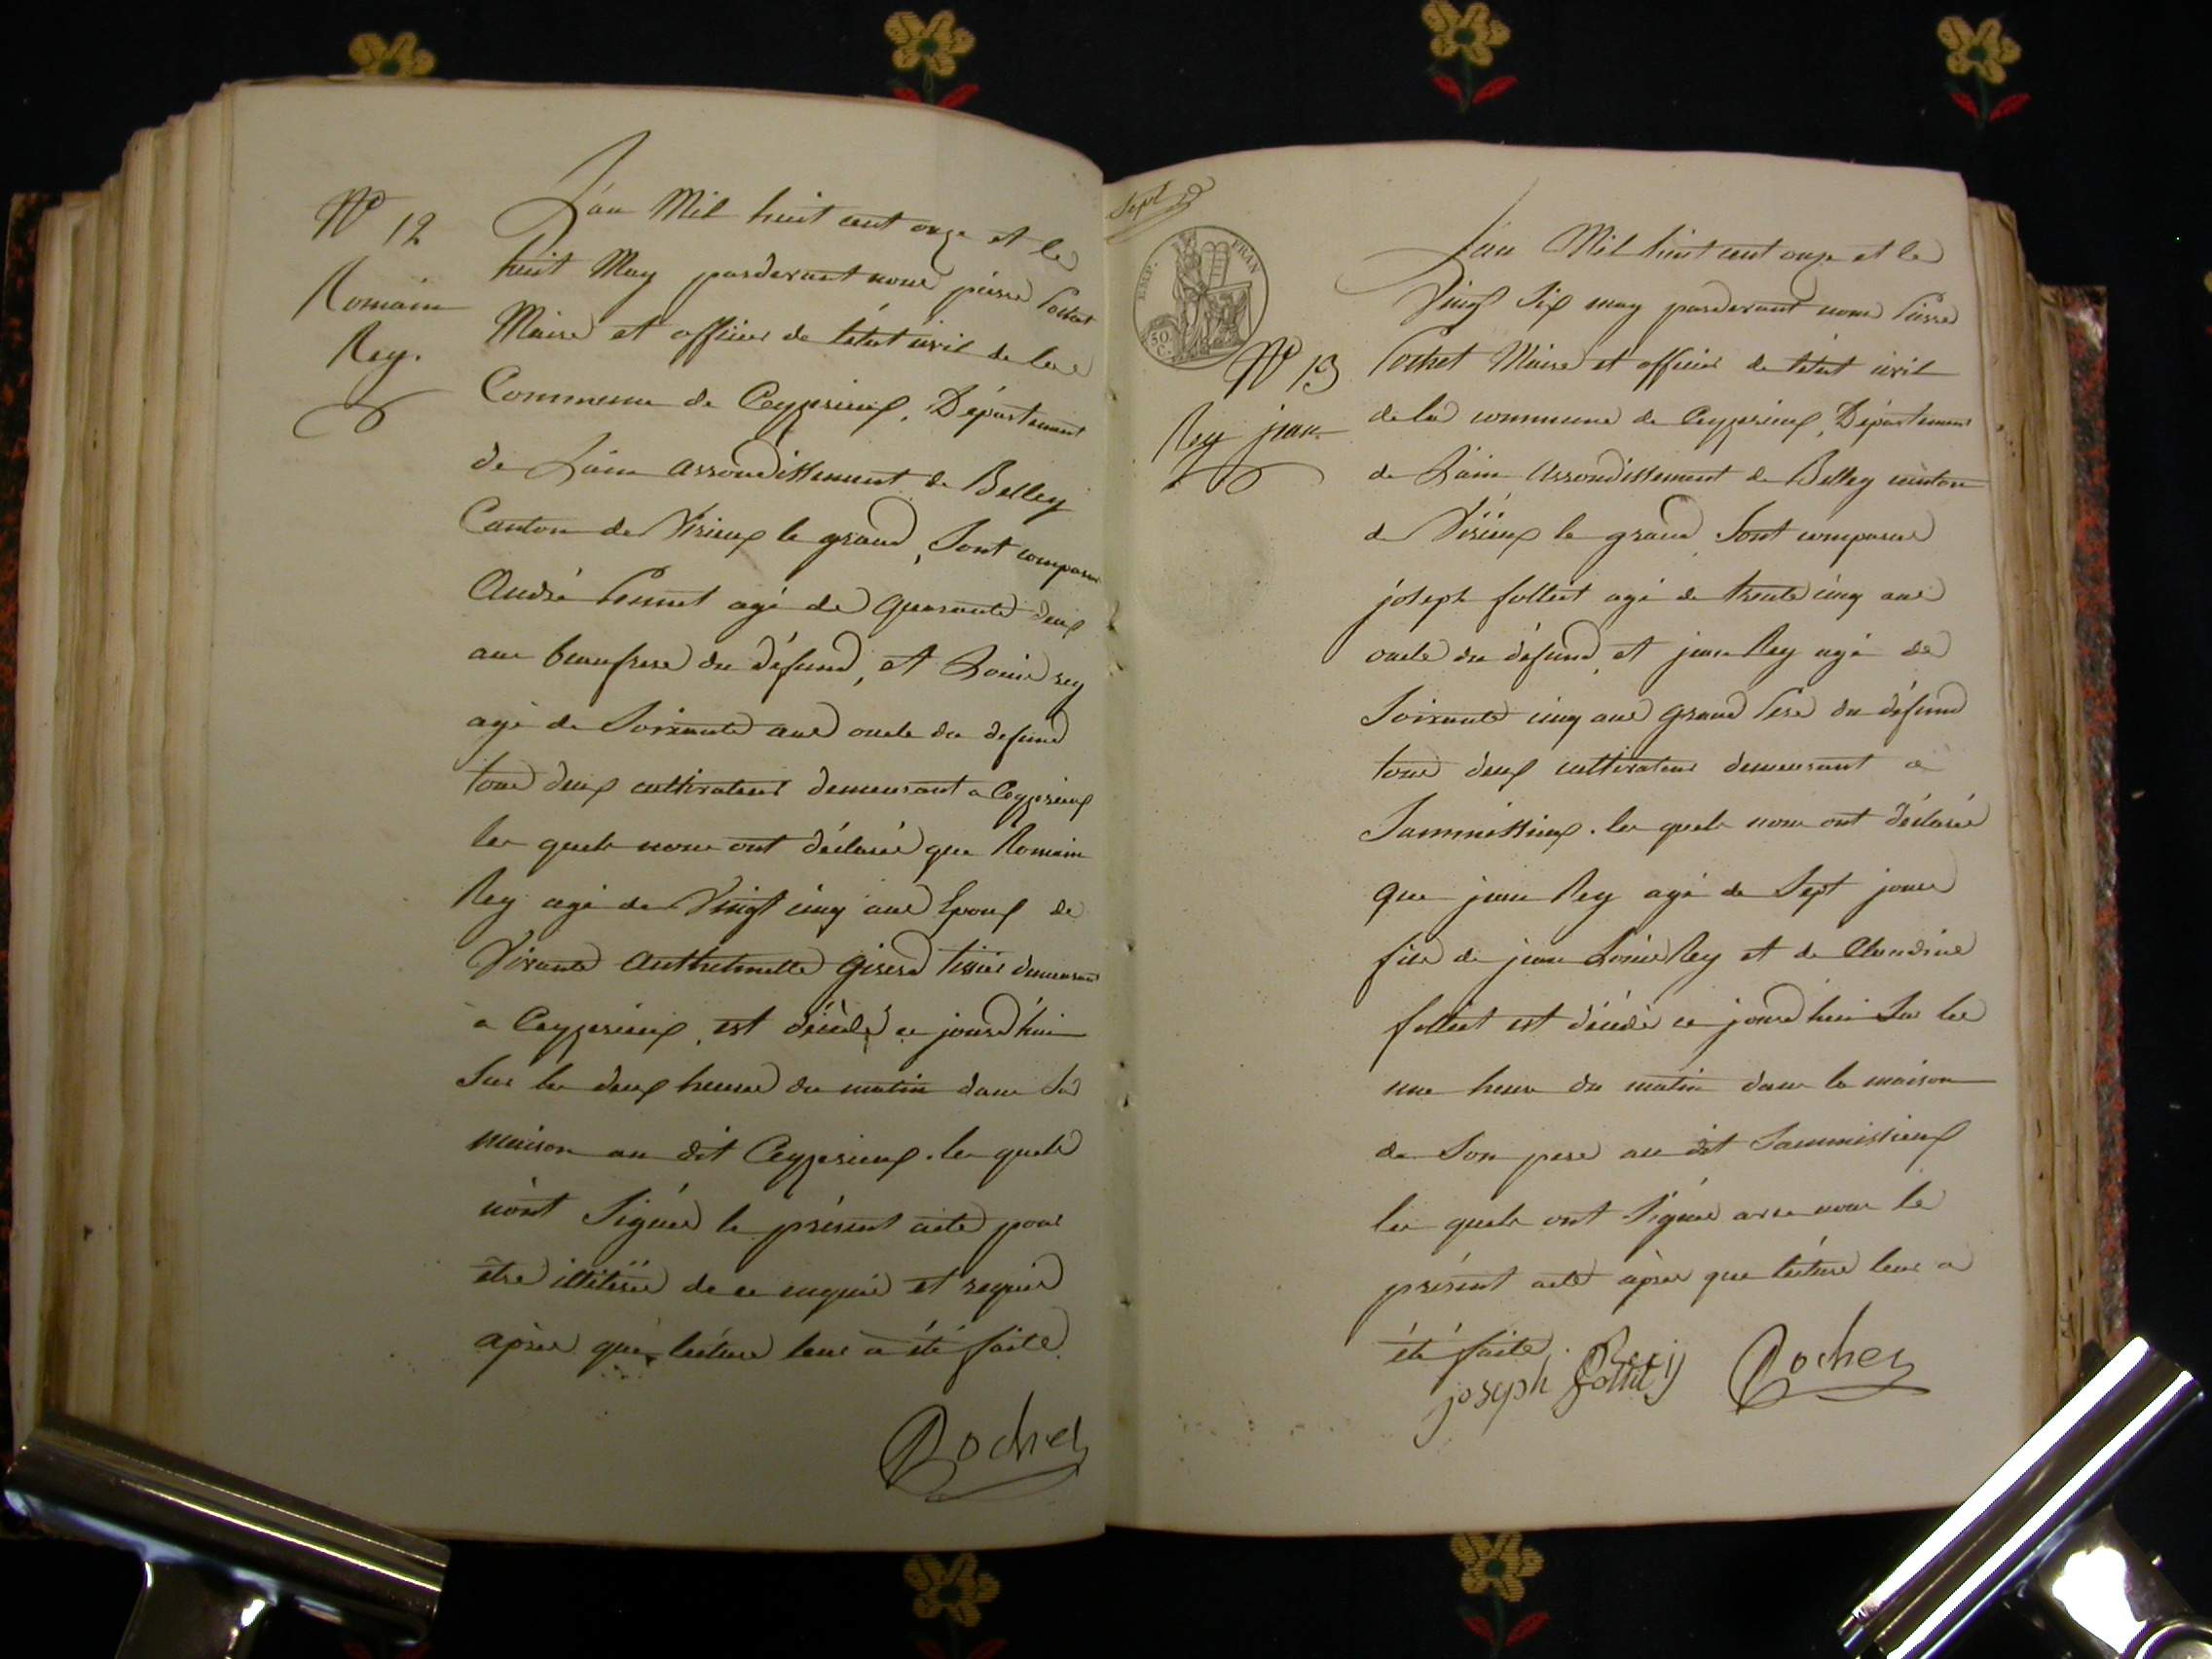 N° 12
Romain
Rey.
L'an Mil huit cent onze et le
huit May pardevant nous pierre Pochet
Maire et officier de l'état civil de la
Commune de Ceyzerieux, Département
de L'ain arrondissement de Belley
Canton de Virieux le grand, Sont comparus
André agé de quarante deux
ans beaufrere du défund, et Louis rey
agé de Soixante ans oncle du defund
tous deux cultivateurs demeurant a Ceyzerieux
les quels nous ont déclarés que Romain
Rey agé de Vingt cinq ans Epoux de
Vivante Anthelmette tissier demeurant
a Ceyzerieux, est décédé ce jourd'hui
Sur les deux heures du matin dans Sa
maison au dit Ceyzerieux. les quels
n'ont Signés le présent acte pour
etre illitérés de ce enquis et requis
après que lecture leur a été faite
Pochet
Sept
EMP. FRAN
50 C.
N° 13
Rey jean
L'an Mil huit cent onze et le
Vingt Six may pardevant nous Pierre
Pochet Maire et officier de l'état civil
de la commune de Ceyzerieux, Département
de L'ain arrondissement de Belley canton
de Virieux le grand Sont comparus
joseph folliet agé de trente cinq ans
oncle du défund, et jean Rey agé de
Soixante cinq ans grand Pere du défund
tous deux cultivateurs demeurant a
Sammissieux. les quels nous ont déclarés
que jean Rey agé de Sept jours
fils de jean Louis Rey et de Claudine
follict est décédé ce jourd'hui Sur les
une heure du matin dans la maison
de Son pere au dit Sammissieux
les quels ont Signés avec nous le
présent acte après que lecture leur a
été faite.
Rey
joseph follict Pochet